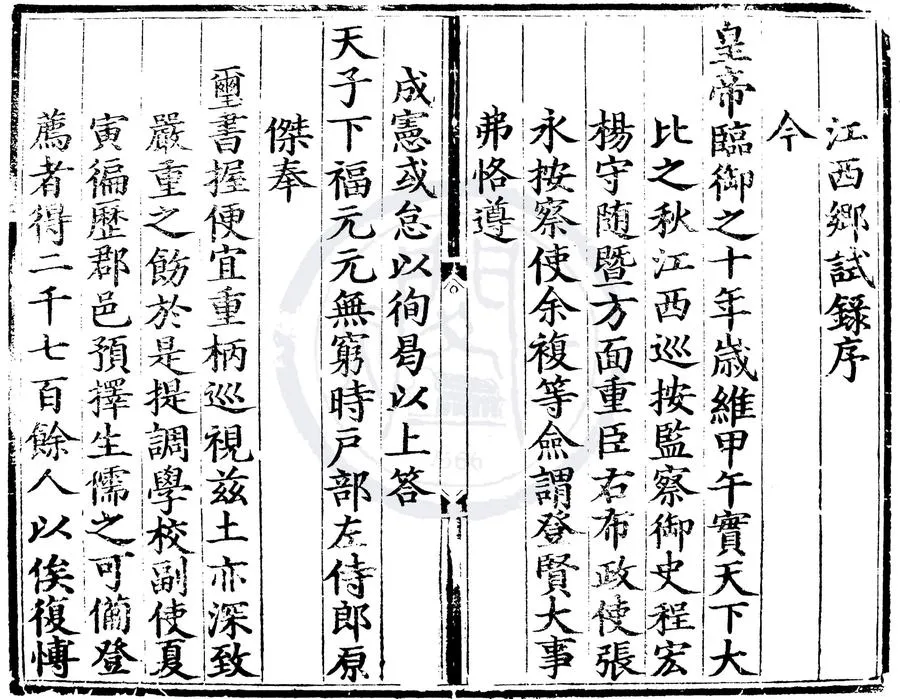 江西鄉試錄序
今
皇帝臨御之十年歲維甲午實天下大
比之秋江西巡按監察御史程宏
楊守随暨方面重臣右布政使張
永按察使余複等僉謂登賢大事
弗恪遵
成憲或怠以徇曷以上答
天子下福元元無窮時戶部左侍郎原
傑奉
璽書握便宜重柄巡視茲土亦深致
嚴重之飭於是提調學校副使夏
寅徧歷郡邑預擇生儒之可備登
薦者得二千七百餘人以俟復慱